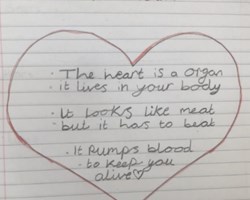 · The heart is a organ
· it lives in your body
· It looks like meat
· but it has to beat
· It Pumps blood
· to keep you
alive♡